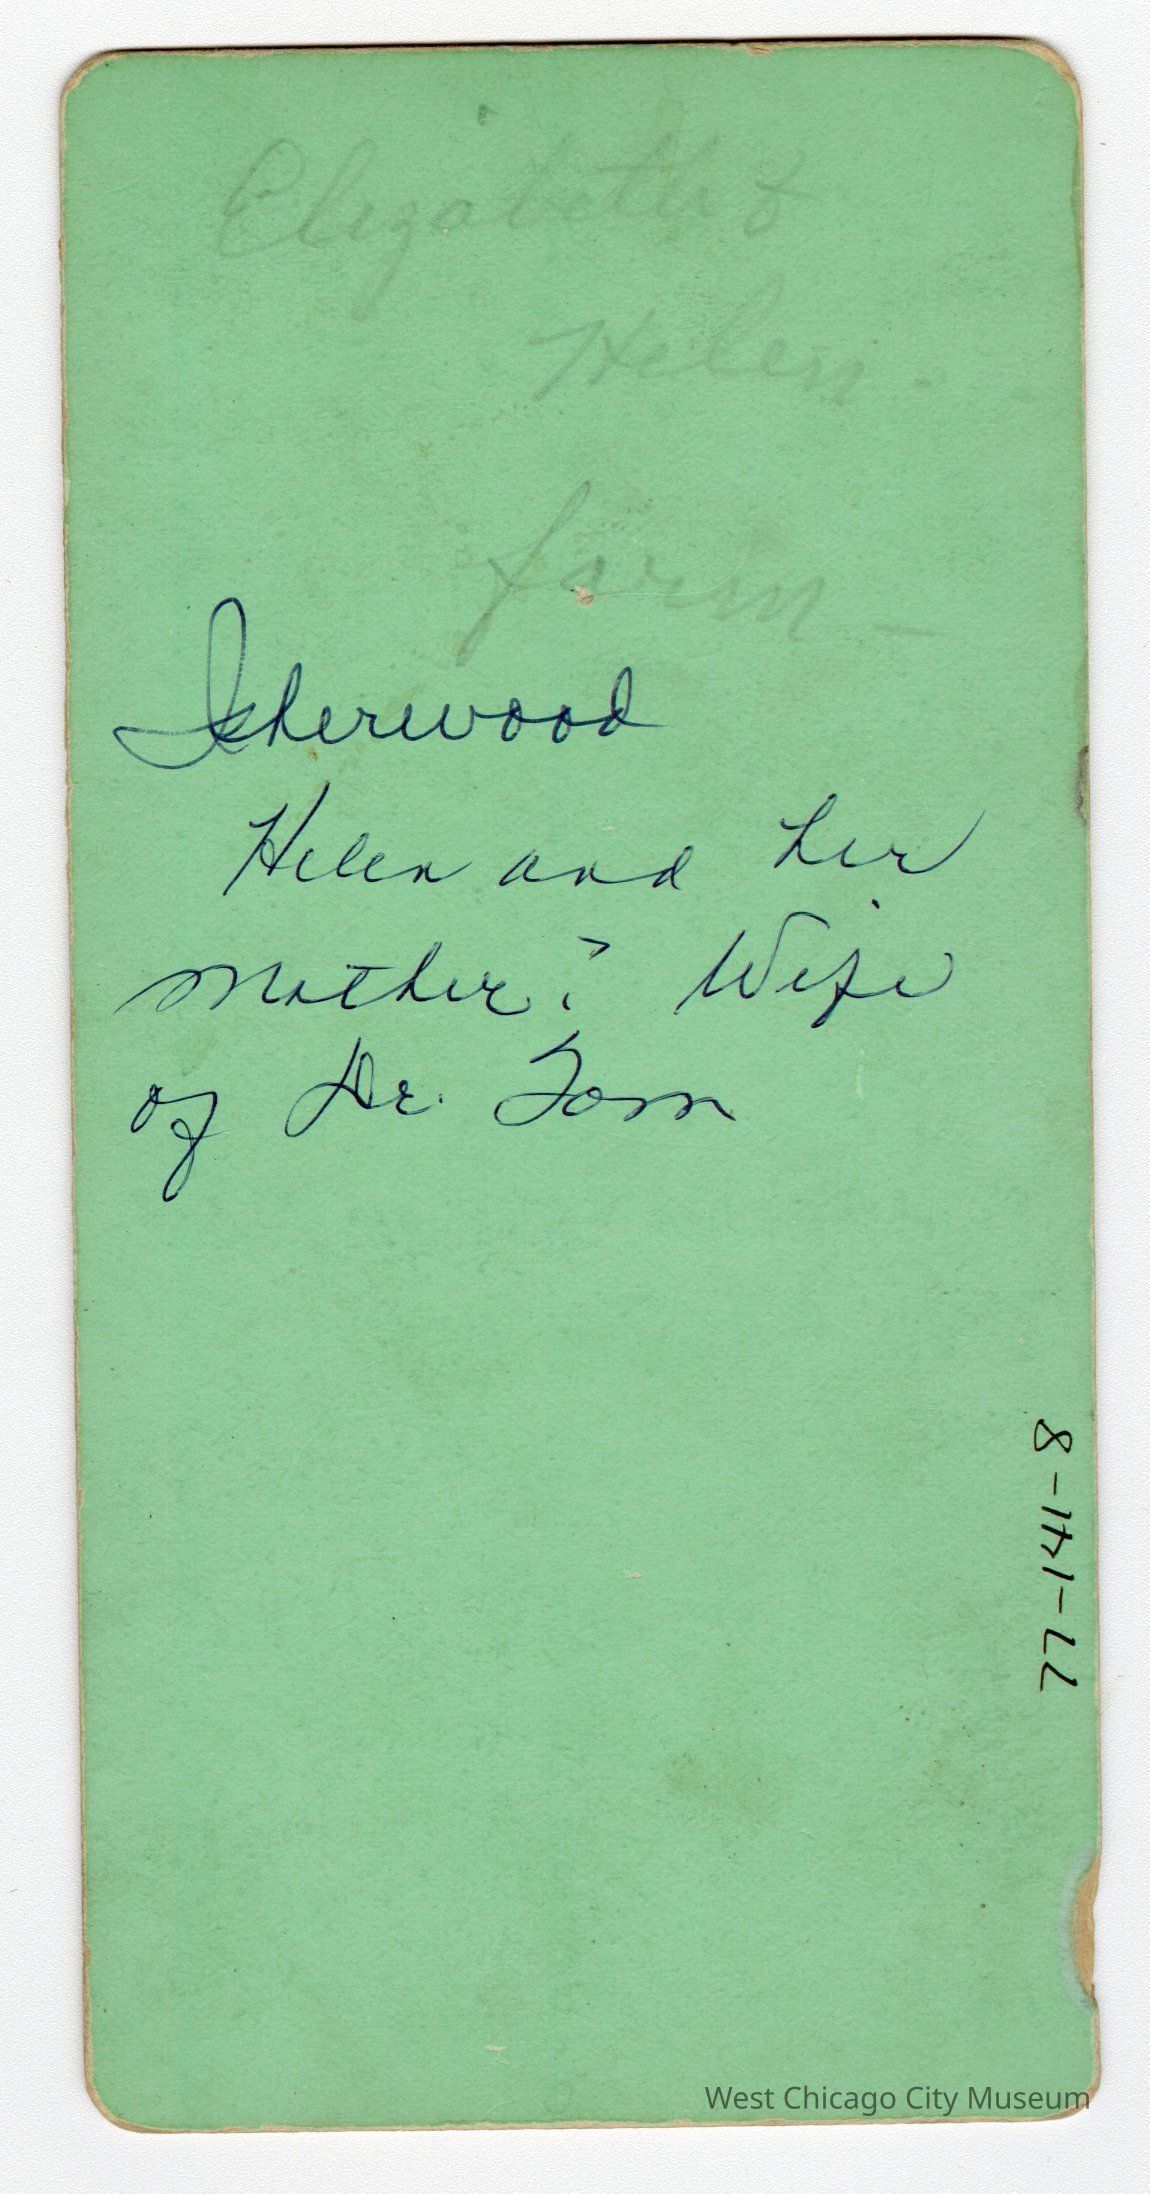 Elizabeth &
Helen -
farm -
Isherwood
Helen and her
Mother? Wife
of Dr. Tom
77-141-8
West Chicago City Museum